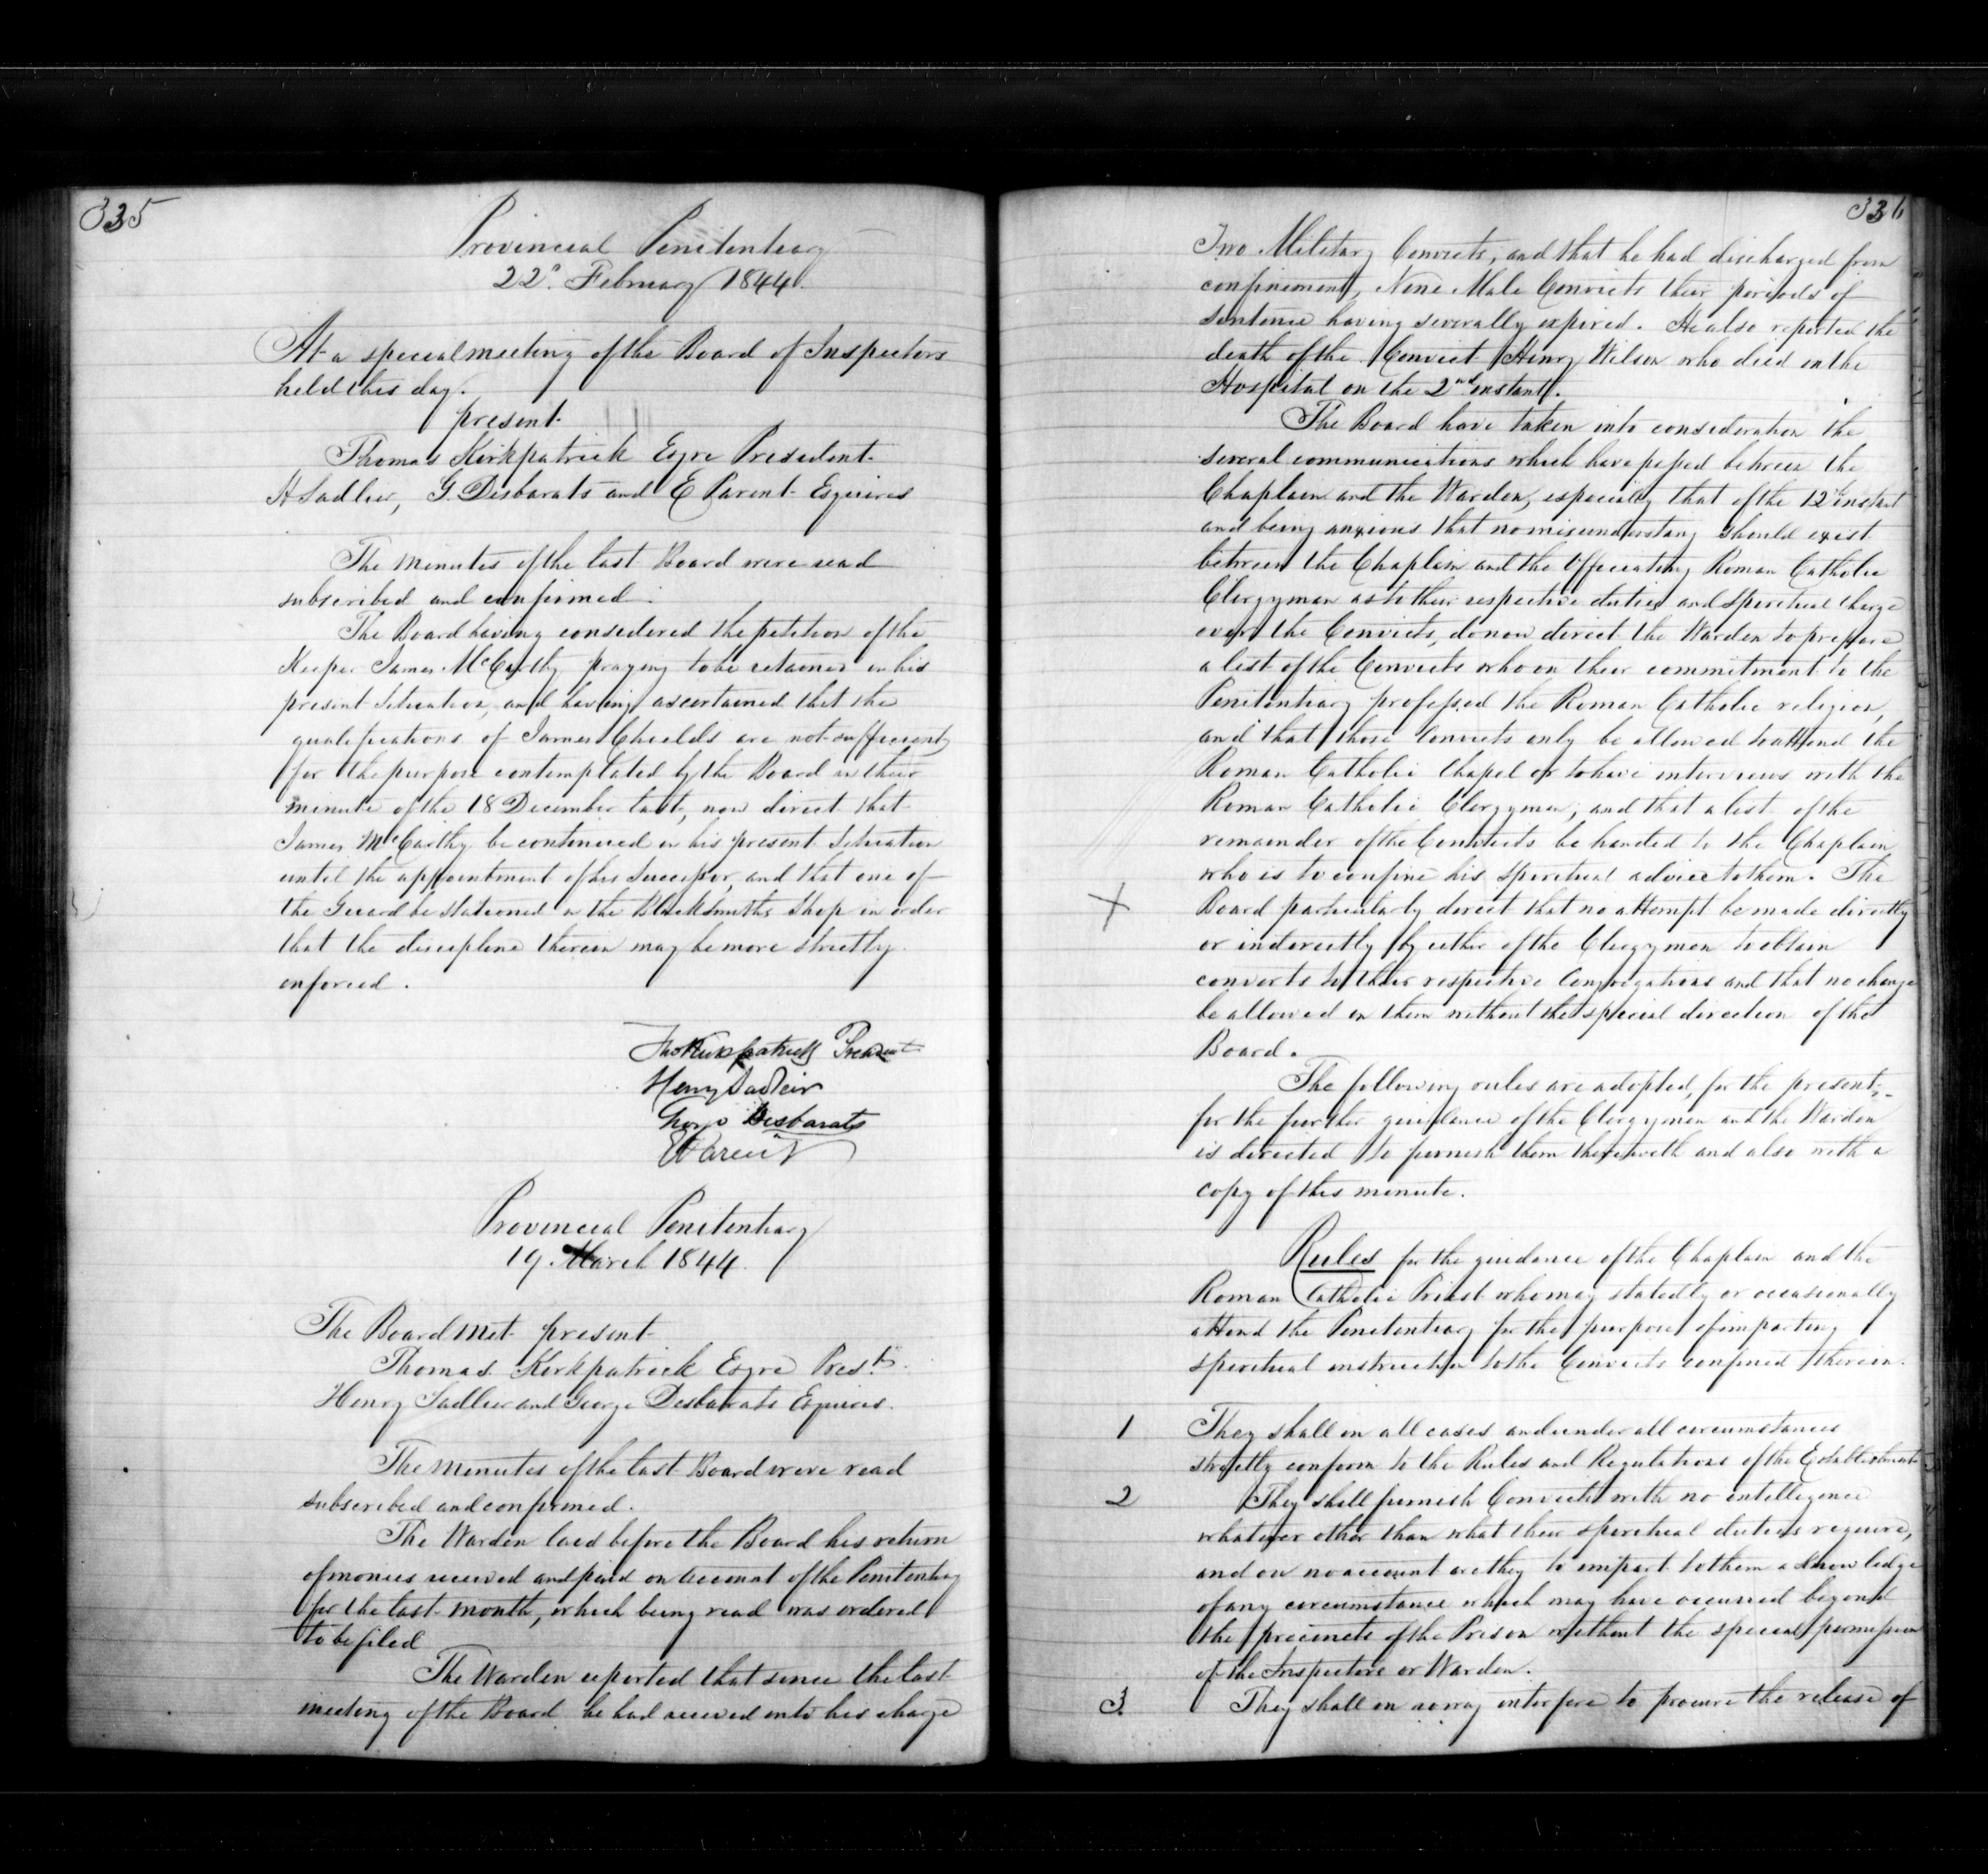 335
Provincial Penitentiary
22d. February 1844.
At a special meeting of the Board of Inspectors
held this day.
present
Thomas Kirkpatrick Esqre President
H Sadlier, G. Desbarats and E Parent Esquires
The minutes of the last Board were read
subscribed and confirmed.
The Board having considered the petition of the
Keeper James McCarthy praying to be retained in his
present Situation, and having ascertained that the
qualifications of James Shields are not sufficient
for the purpose contemplated by the Board in their
minute of the 18 December last, now direct that
James McCarthy be continued in his present Situation
until the appointment of his Successor, and that one of
the Guard be Stationed in the Blacksmiths Shop in order
that the discipline therein may be more strictly
enforced.
Thos Kirkpatrick President
Henry Sadleir
George Desbarats
E Parent
Provincial Penitentiary
19. March 1844.
The Board met present
Thomas Kirkpatrick Esqre Prest.
Henry Sadlier and George Desbarats Esquires.
The minutes of the last Board were read
subscribed and confirmed.
The Warden laid before the Board his return
of monies received and paid on account of the Penitentiary
for the last month, which being read was ordered
to be filed
The Warden reported that since the last
meeting of the Board he had received into his charge
336
Two Military Convicts, and that he had discharged from
confinement, Nine Male Convicts their periods of
Sentence having severally expired. He also reported the
death of the Convict Henry Wilson who died in the
Hospital on the 2nd instant.
The Board have taken into consideration the
several communications which have passed between the
Chaplain and the Warden, especially that of the 12th instant
and being anxious that no misunderstang should exist
between the Chaplain and the Officiating Roman Catholic
Clergyman as to their respective duties and Spiritual charge
over the Convicts, do now direct the Warden to prepare
a list of the Convicts who on their commitment to the
Penitentiary professed the Roman Catholic religion,
and that those Convicts only be allowed to attend the
Roman Catholic Chapel or to have interviews with the
Roman Catholic Clergyman, and that a list of the
remainder of the Convicts be handed to the Chaplain
who is to confine his Spiritual advice to them. The
X Board particularly direct that no attempt be made directly
or indirectly by either of the Clergymen to obtain
converts to their respective Congregations and that no change
be allowed in them without the special direction of the
Board.
The following rules are adopted, for the present,
for the further guidance of the Clergymen and the Warden
is directed to furnish them therewith and also with a
copy of this minute.
Rules for the guidance of the Chaplain and the
Roman Catholic Priest who may statedly or occasionally
attend the Penitentiary for the purpose of imparting
spiritual instruction to the Convicts confined therein.
1 They shall in all cases and under all circumstances
strictly conform to the Rules and Regulations of the Establishment
2 They shall furnish Convicts with no intelligence
whatever other than what their spiritual duties require,
and on no account are they to impart to them a knowledge
of any circumstance which may have occurred beyond
the precincts of the Prison without the special permission
of the Inspectors or Warden.
3. They shall in no way interfere to procure the release of